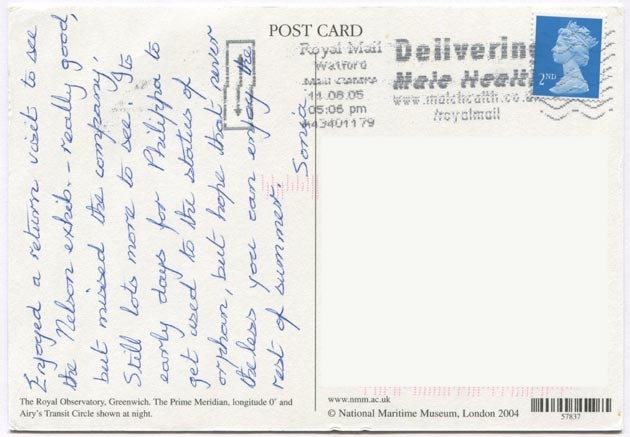 POST CARD
Enjoyed a return visit to see
the Nelson exhib. - really good,
but missed the company.
Still lots more to see. It's
early days for Philippa to
get used to the status of
orphan, but hope that never
theless you can enjoy the
rest of summer. Sonia
Royal Mail
Watford
Mail Centre
11.08.05
05:06 pm
43401179
Delivering
Male Health
www.malehealth.co.uk
/royalmail
2ND
The Royal Observatory, Greenwich. The Prime Meridian, longitude 0° and
Airy's Transit Circle shown at night.
www.nmm.ac.uk
© National Maritime Museum, London 2004
57837